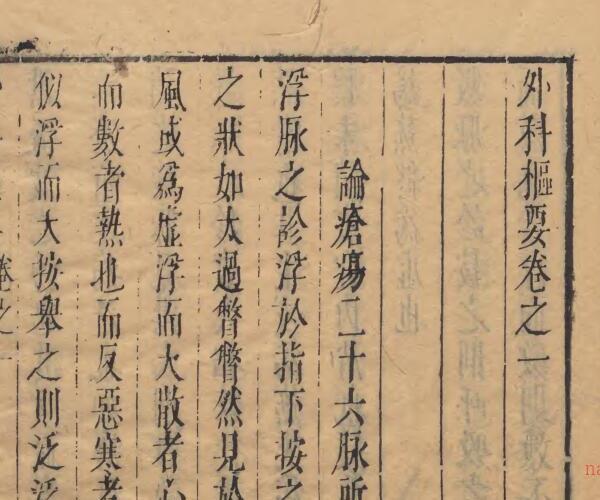 外科樞要卷之一
論瘡瘍二十六脉所
浮脉之診浮於指下按之
之狀如太過瞥瞥然見於
風或為虛浮而大散者心
而數者熱也而反惡寒者
似浮而大按舉之則泛泛
卷之一
na